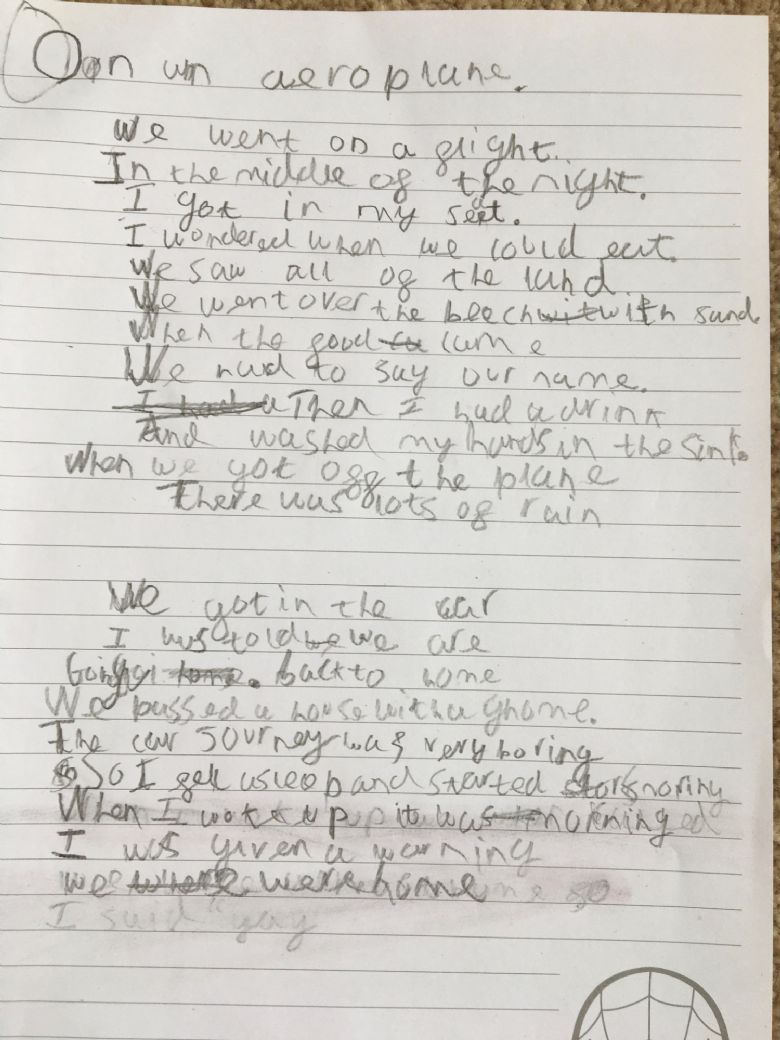 Oon un aeroplane.
We went on a flight.
In the middle of the night.
I got in my seat.
I wondered when we could eat.
We saw all of the land
We went over the beech with sand.
When the good came
We had to say our name.
Then I had a drink
And washed my hands in the sink.
When we got off the plane
There was lots of rain
We got in the car
I was told we are
Going back to home
We passed a house with a ghome.
The car journey was very boring
So I fell asleep and started snoring
When I woke up it was morning
I was given a warning
we were home so
I said "yay